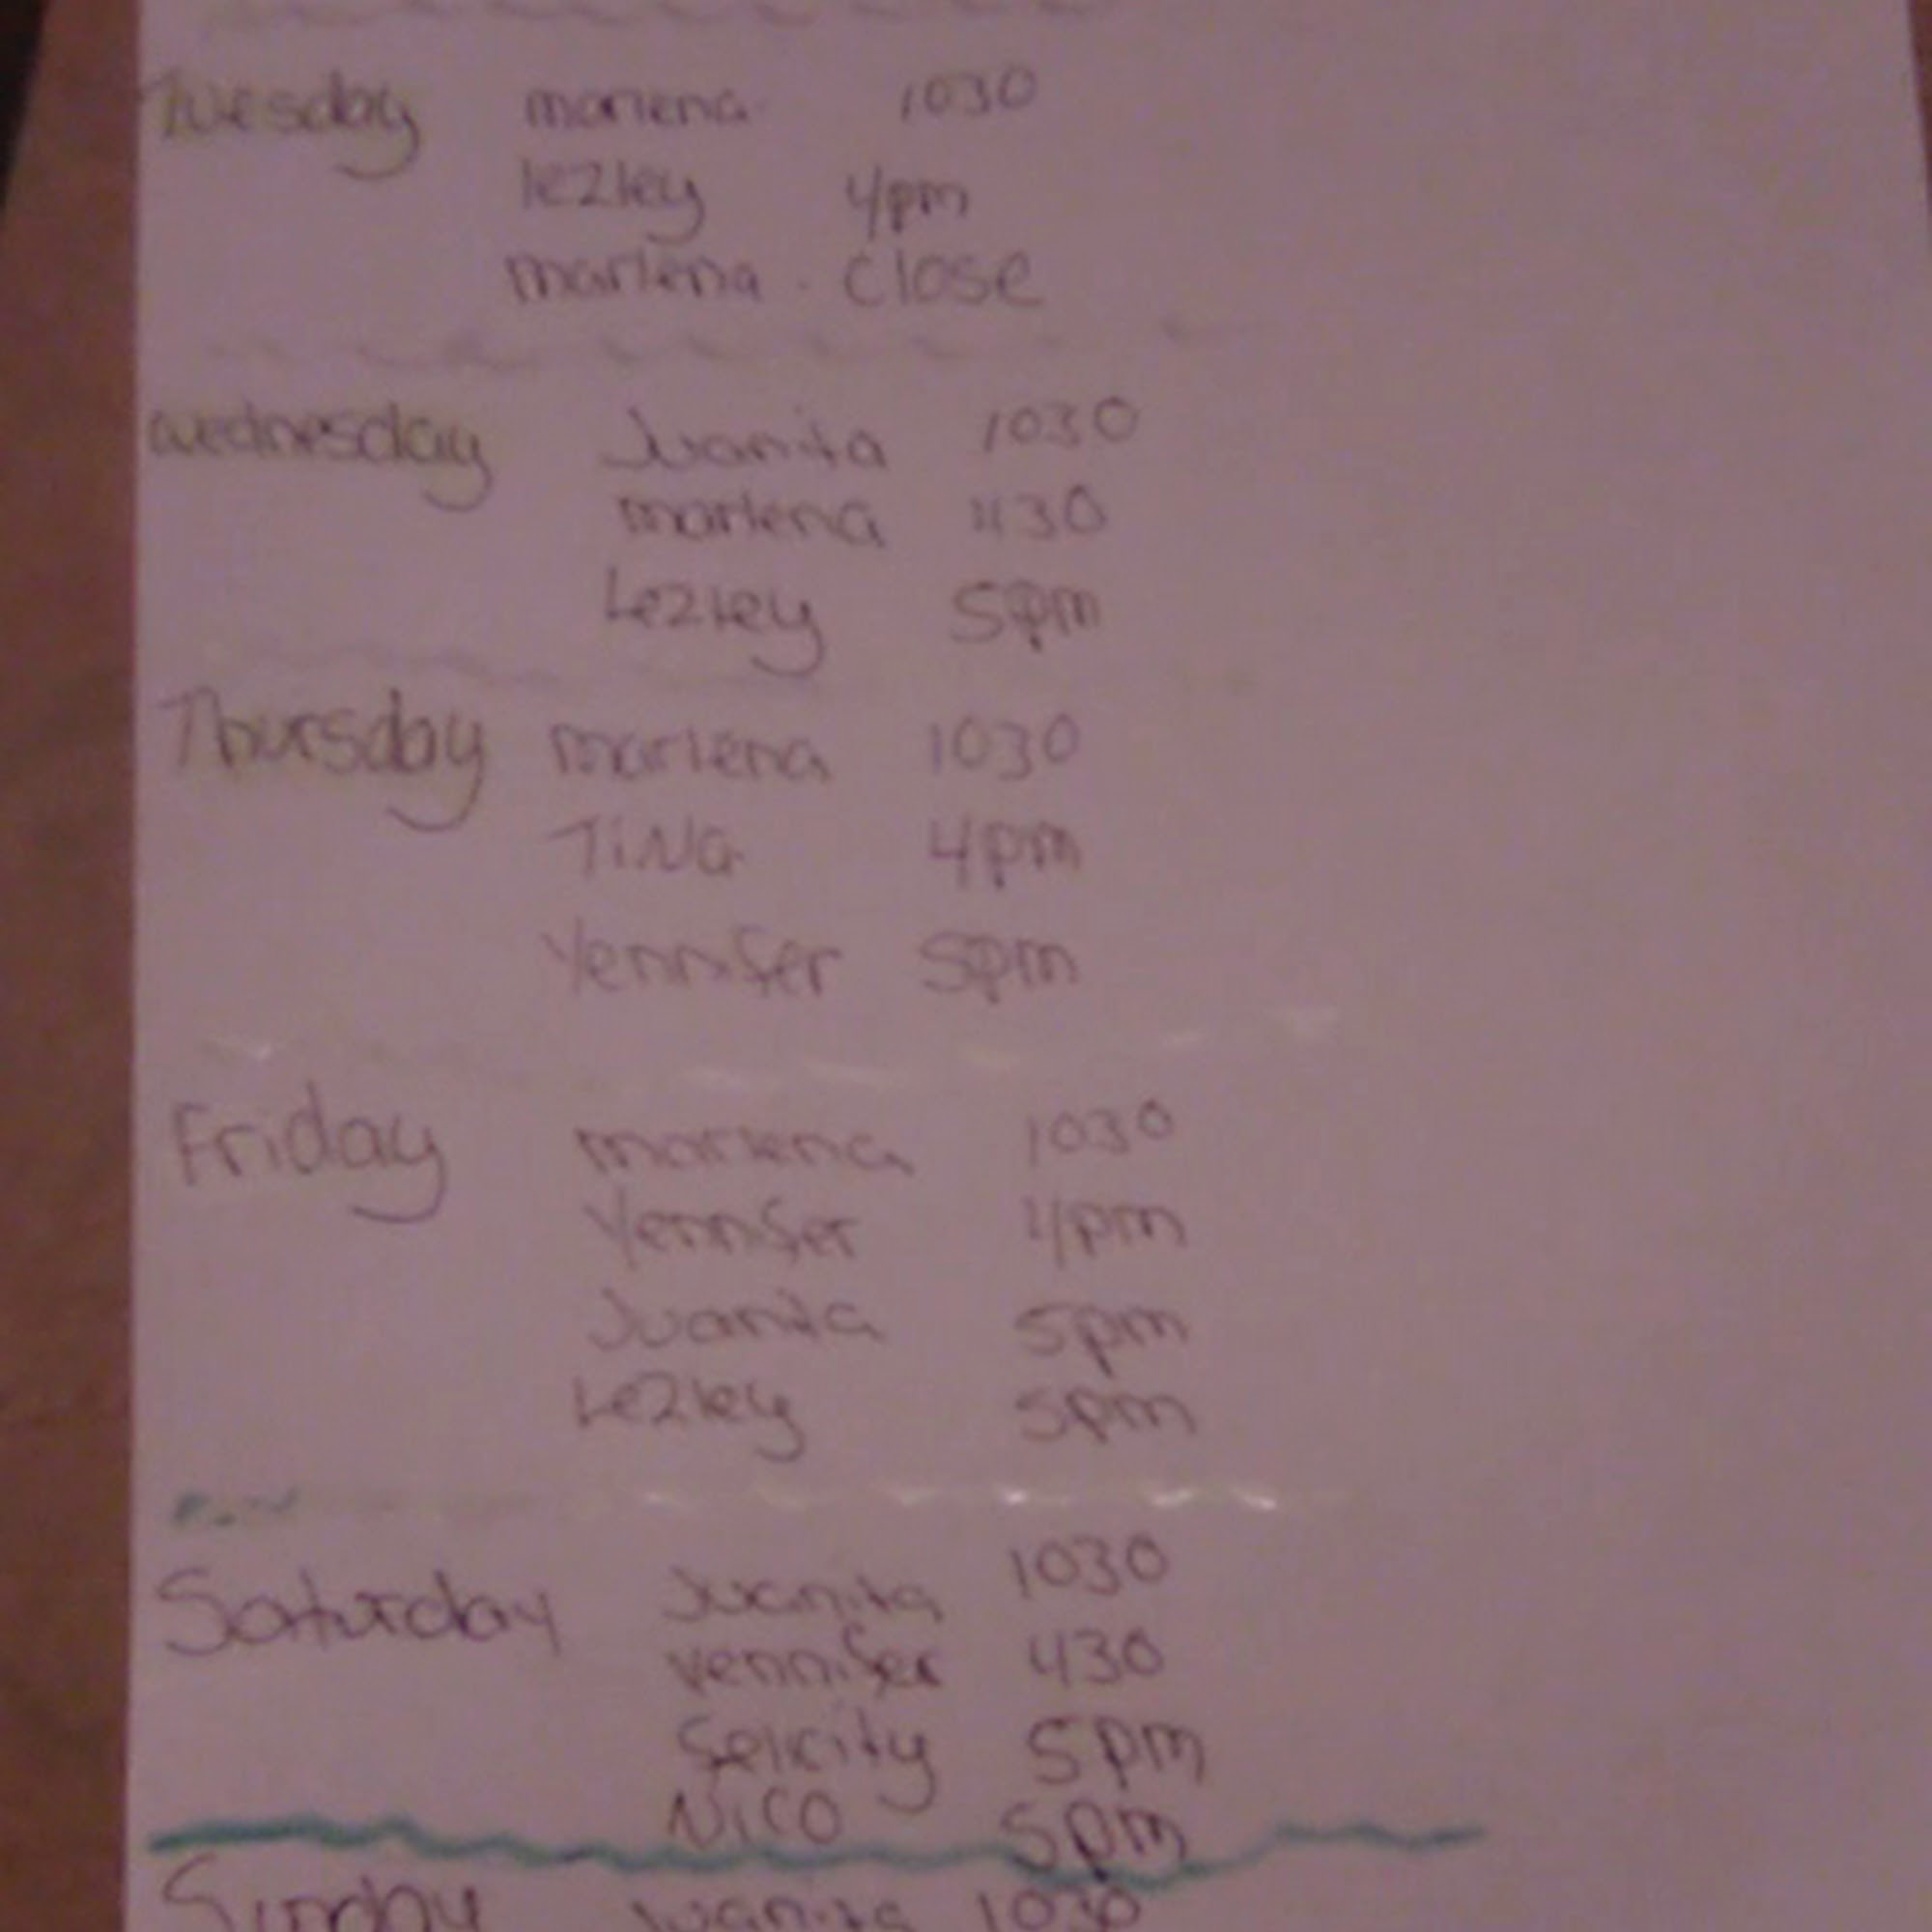 Tuesday marlena 1030
lezley 4pm
marlena - Close
wednesday Juanita 1030
marlena 430
Lezley 5pm
Thursday marlena 1030
TiNa 4pm
Yennifer 5pm
Friday marlena 1030
Yennifer 4pm
Juanita 5pm
Lezley 5pm
Saturday Juanita 1030
yennifer 430
felicity 5pm
Nico 5pm
Sunday Juanita 1030